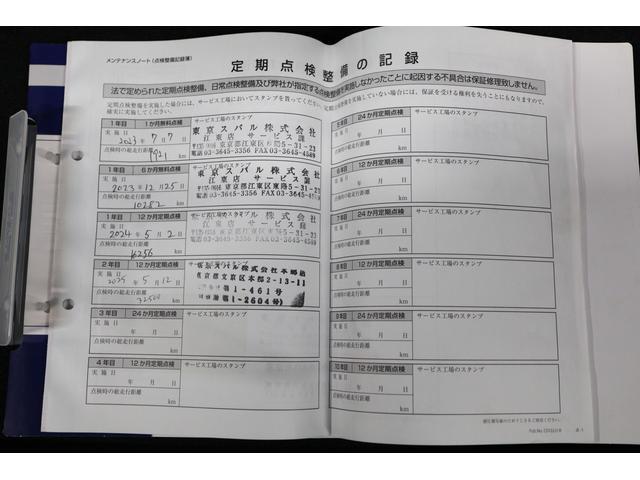 メンテナンスノート(点検整備記録簿)
定期点検整備の記録
法で定められた定期点検整備、日常点検整備及び弊社が指定する点検整備を実施しなかったことに起因する不具合は保証修理致しません。
定期点検整備を実施した場合には、サービス工場においてスタンプを貰ってください。定期点検整備を実施していない場合には、保証を受ける権利を失うこともありますので、
確実に実施してください。
1年目 1か月無料点検 サービス工場のスタンプ
実施日 2023年7月7日
点検時の総走行距離 km
東京スバル株式会社
江東店 サービス課
東京都江東区東陽5-31-23
03-3645-3356 FAX03-3645-4589
1年目 6か月無料点検 サービス工場のスタンプ
実施日 2023年12月25日
点検時の総走行距離 10282 km
東京スバル株式会社
江東店 サービス課
東京都江東区東陽5-31-23
03-3645-3356 FAX03-3645-4589
1年目 12か月定期点検 サービス工場のスタンプ
実施日 2024年5月2日
点検時の総走行距離 16256 km
東京スバル株式会社
江東店 サービス課
東京都江東区東陽5-31-23
03-3645-3356 FAX03-3645-4589
2年目 12か月定期点検
実施日 2025年5月12日
点検時の総走行距離 32500 km
東京スバル株式会社本郷店
東京都文京区本郷2-13-11
第1-461号
第1-2604号)
3年目 24か月定期点検 サービス工場のスタンプ
実施日 年 月 日
点検時の総走行距離 km
4年目 12か月定期点検 サービス工場のスタンプ
実施日 年 月 日
点検時の総走行距離 km
5年目 24か月定期点検 サービス工場のスタンプ
実施日 年 月 日
点検時の総走行距離 km
6年目 12か月定期点検 サービス工場のスタンプ
実施日 年 月 日
点検時の総走行距離 km
7年目 24か月定期点検 サービス工場のスタンプ
実施日 年 月 日
点検時の総走行距離 km
8年目 12か月定期点検 サービス工場のスタンプ
実施日 年 月 日
点検時の総走行距離 km
9年目 24か月定期点検 サービス工場のスタンプ
実施日 年 月 日
点検時の総走行距離 km
10年目 12か月定期点検 サービス工場のスタンプ
実施日 年 月 日
点検時の総走行距離 km